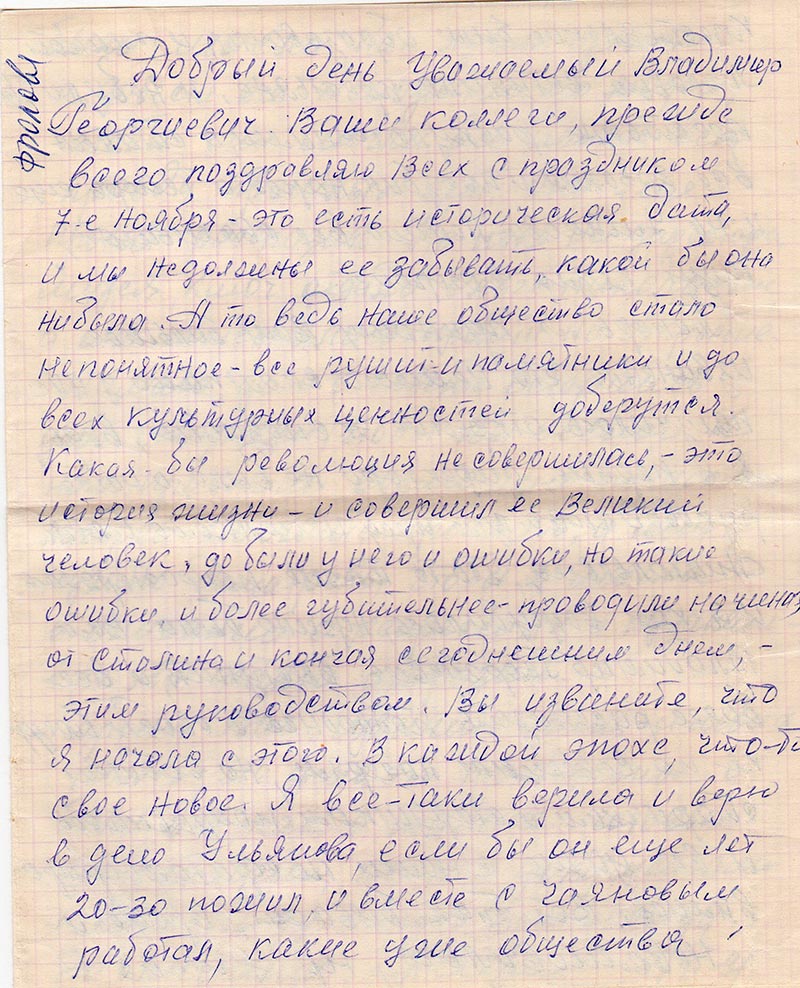 Фролова
Добрый день Уважаемый Владимир
Георгиевич. Ваши коллеги, прежде
всего поздравляю Всех с праздником
7-е ноября - это есть историческая дата,
и мы недолжны ее забывать, какой бы она
нибыла. А то ведь наше общество стало
непонятное - все рушит - и памятники и до
всех культурных ценностей доберутся.
Какая-бы революция не совершилась, - это
история жизни - и совершил ее Великий
человек, да были у него и ошибки, но такие
ошибки, и более губительнее - проводили начиная
от Сталина и кончая сегоднешним днем, -
этим руководством. Вы извините, что
я начала с этого. В каждой эпохе, что-то
свое новое. Я все-таки верила и верю
в дело Ульянова, если бы он еще лет
20-30 пожил, и вместе с Чаяновым
работал, какие уже общества